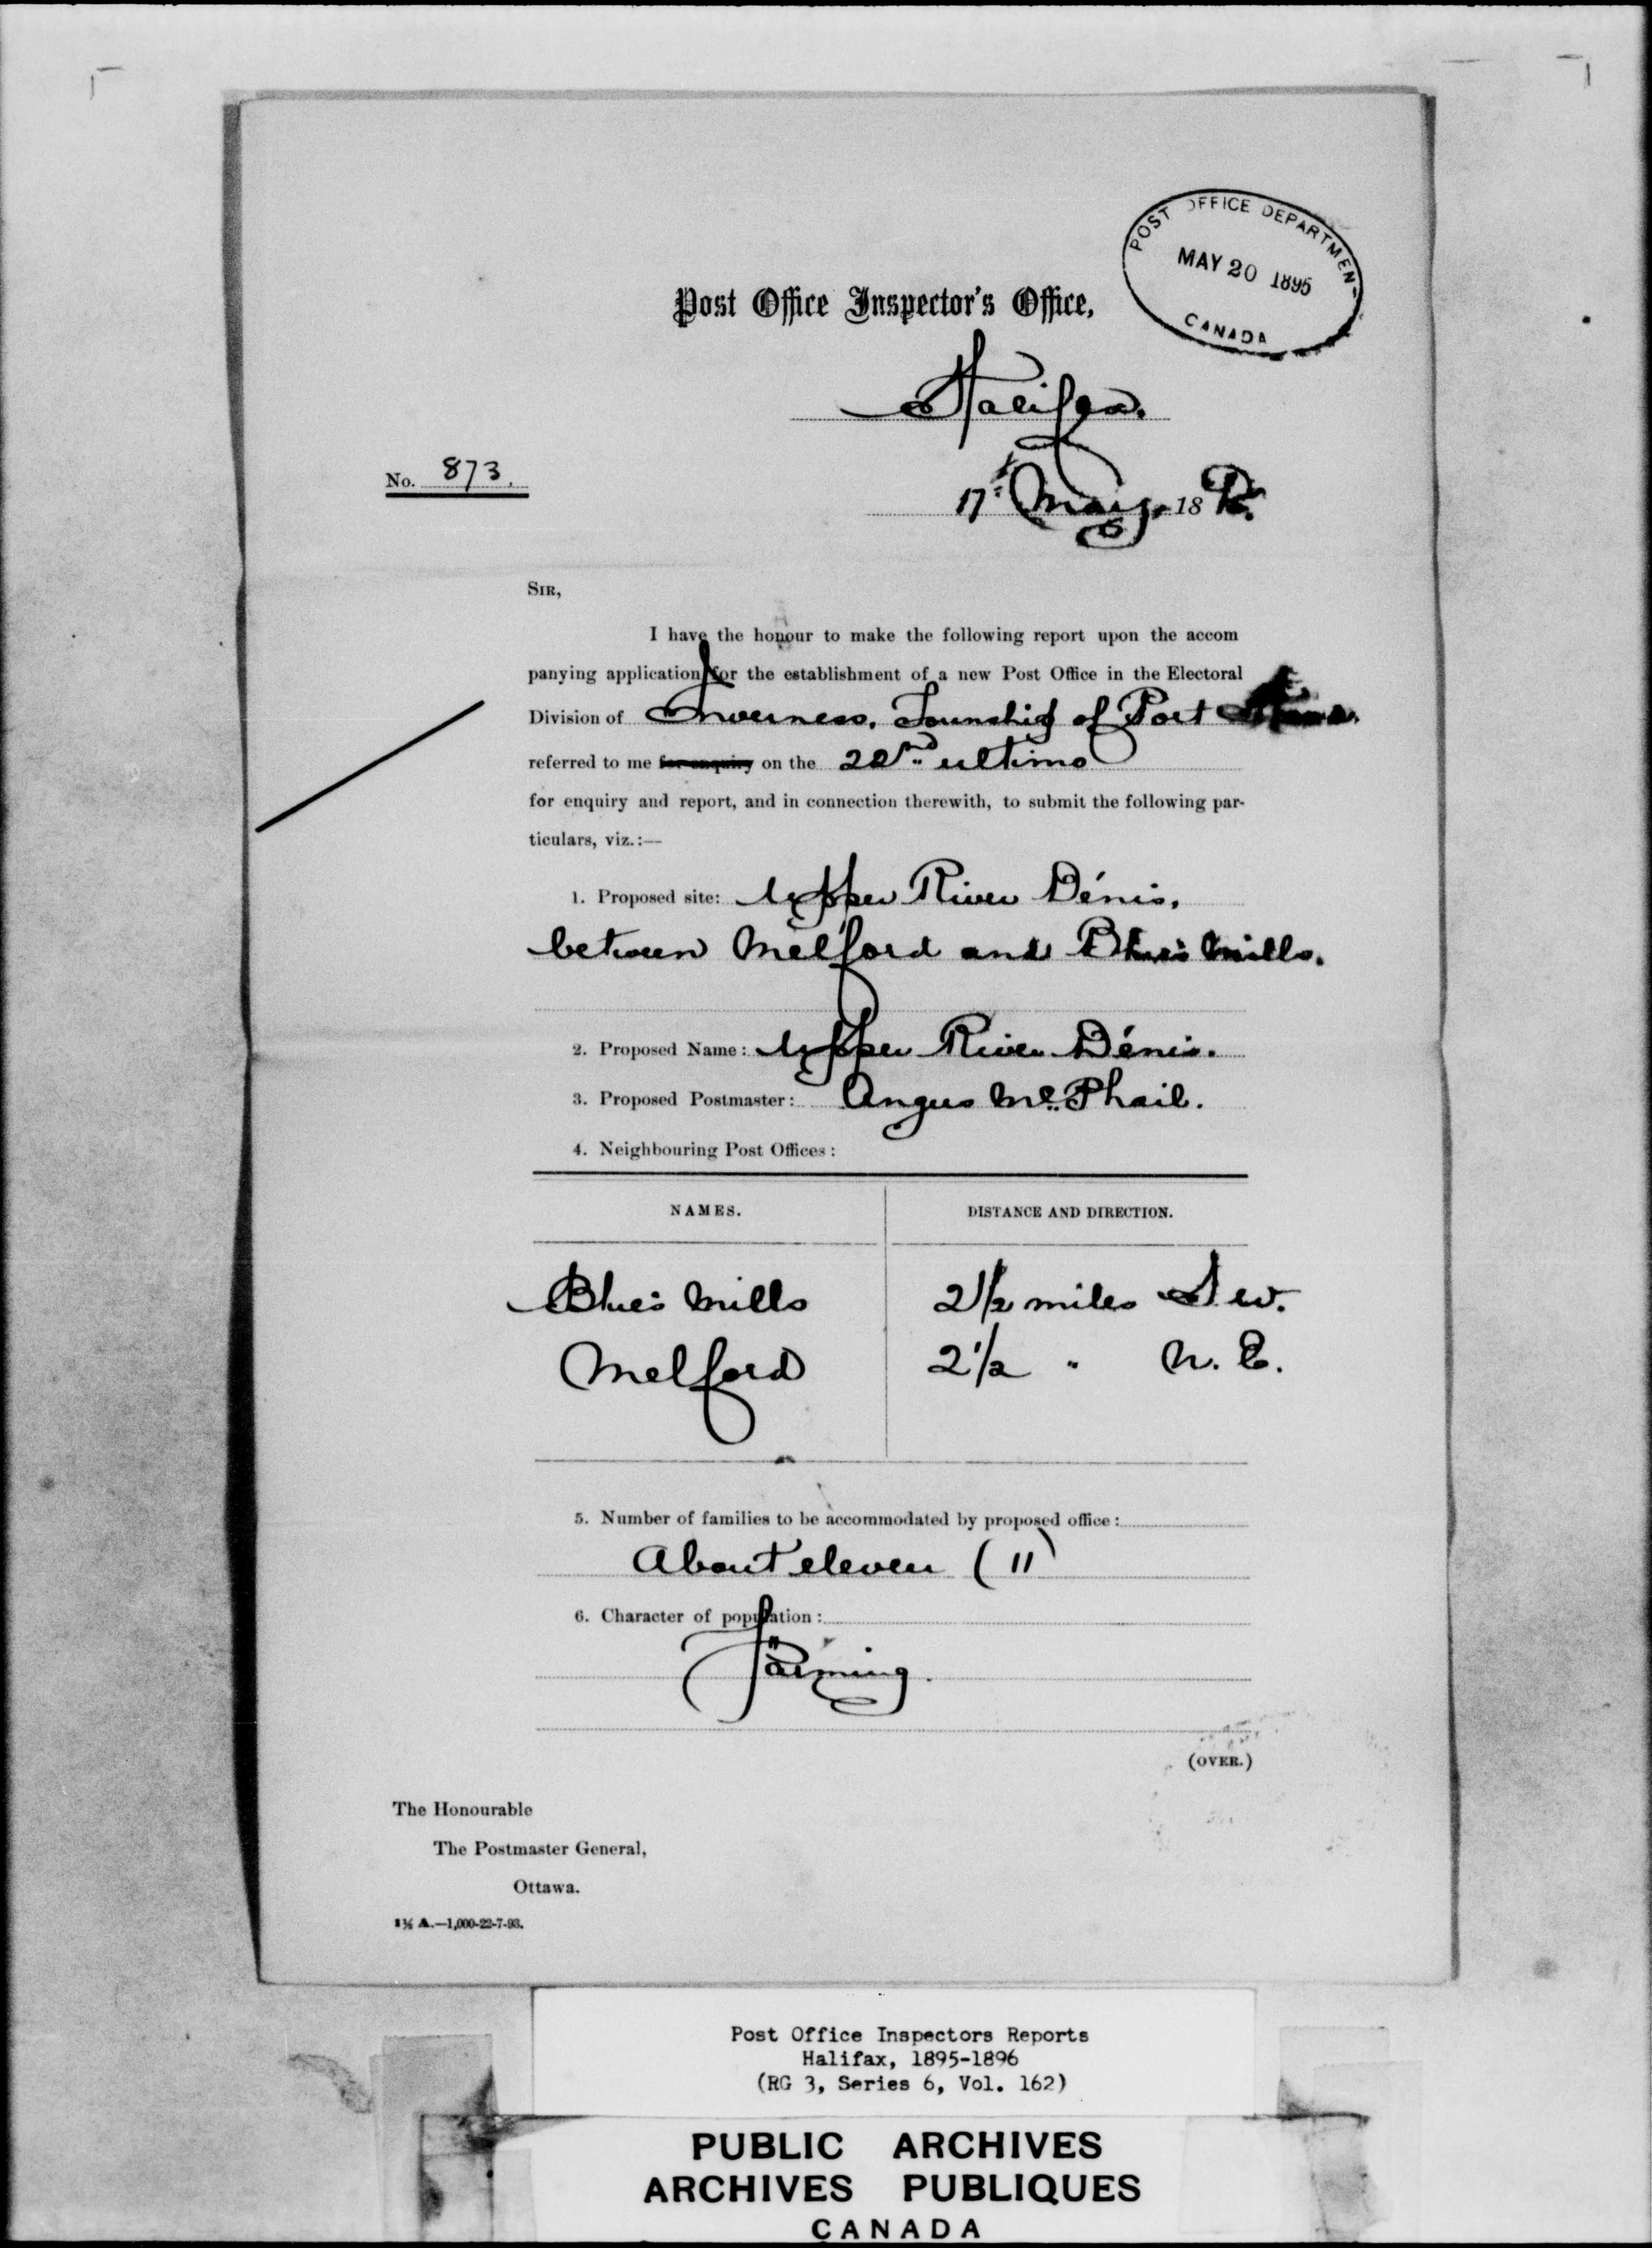 POST OFFICE DEPARTMENT
MAY 20 1895
CANADA
Post Office Inspector's Office,
Halifax.
No. 873.
17th May, 1895.
SIR,
I have the honour to make the following report upon the accom
panying application for the establishment of a new Post Office in the Electoral
Division of Inverness, Township of Port
referred to me for enquiry on the 22nd ultimo
for enquiry and report, and in connection therewith, to submit the following par-
ticulars, viz.:—
1. Proposed site: Upper River Dénis,
between Melford and Blue's Mills.
2. Proposed Name: Upper River Dénis.
3. Proposed Postmaster: Angus McPhail.
4. Neighbouring Post Offices:
NAMES. DISTANCE AND DIRECTION.
Blue's Mills 2 1/2 miles S W.
Melford 2 1/2 " N. E.
5. Number of families to be accommodated by proposed office:
About eleven (11)
6. Character of population:
Farming.
(OVER.)
The Honourable
The Postmaster General,
Ottawa.
1½ A.—1,000-22-7-93.
Post Office Inspectors Reports
Halifax, 1895-1896
(RG 3, Series 6, Vol. 162)
PUBLIC ARCHIVES
ARCHIVES PUBLIQUES
CANADA